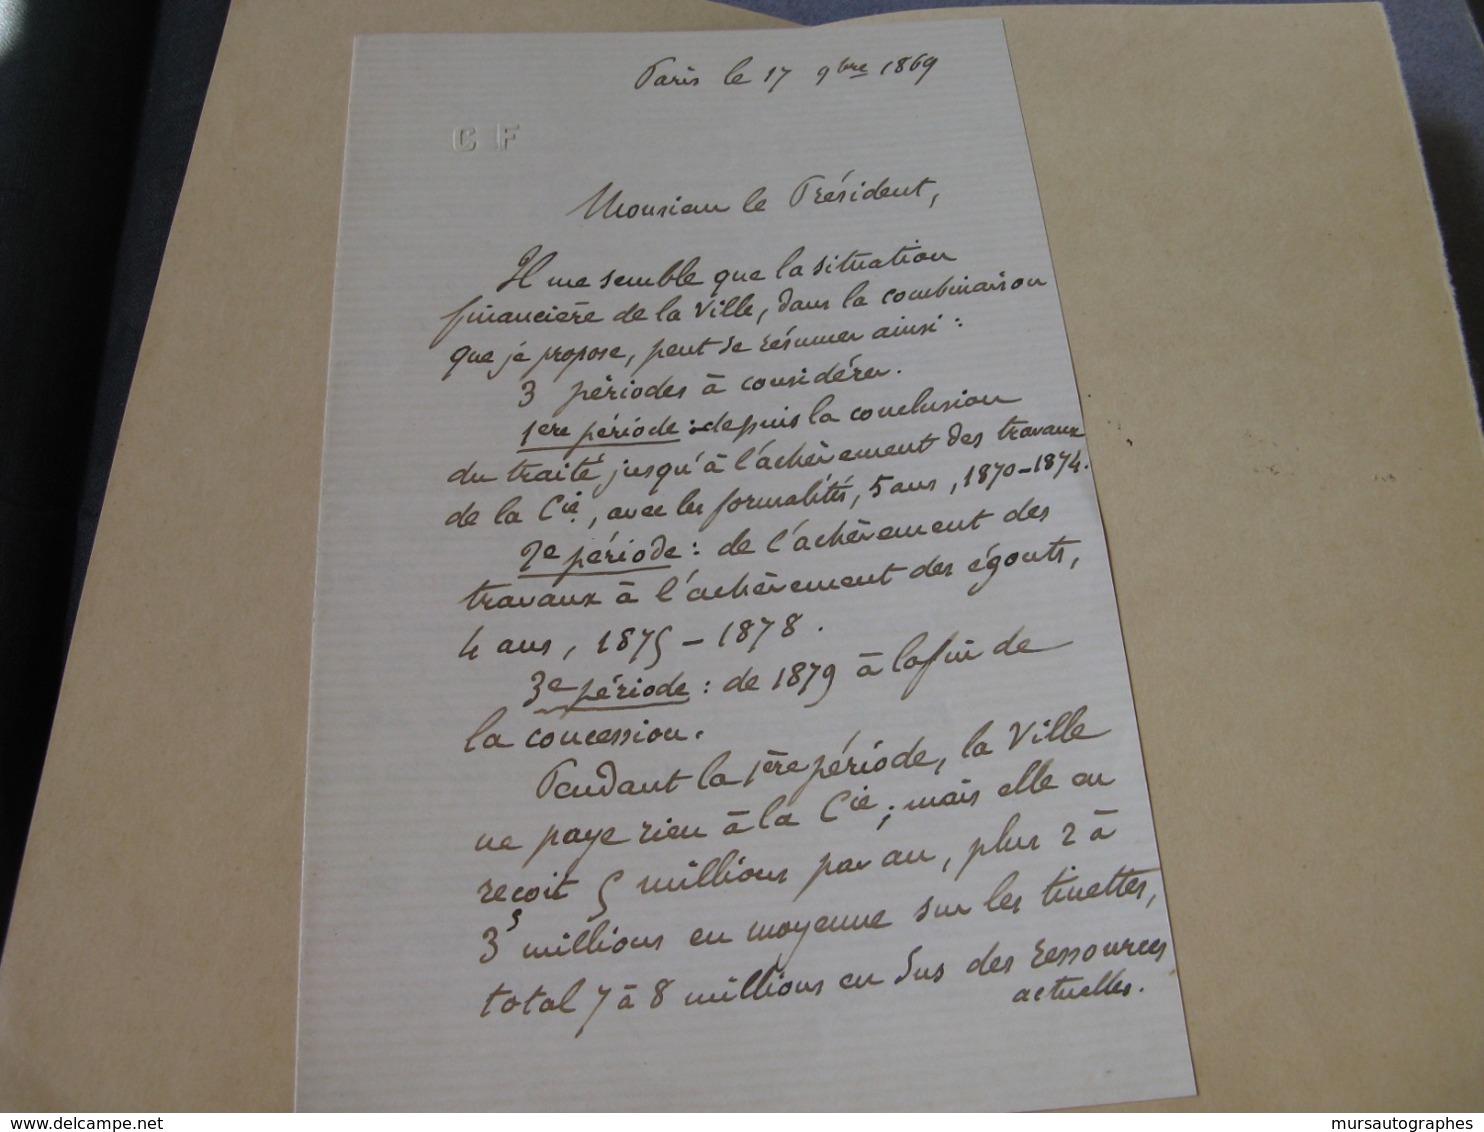 Paris le 17 9bre 1869
C F
Monsieur le Président,
Il me semble que la situation
financière de la Ville, dans la combinaison
que je propose, peut se résumer ainsi :
3 périodes à considérer.
1ere période : depuis la conclusion
du traité jusqu'à l'achèvement des travaux
de la Cie, avec les formalités, 5 ans, 1870-1874.
2e période : de l'achèvement des
travaux à l'achèvement des égouts,
4 ans, 1875-1878.
3e période : de 1879 à la fin de
la concession.
Pendant la 1ère période, la Ville
ne paye rien à la Cie ; mais elle en
reçoit 5 millions par an, plus 2 à
3 millions en moyenne sur les tinettes,
total 7 à 8 millions en sus des ressources
actuelles.
delcampe.net
mursautographes